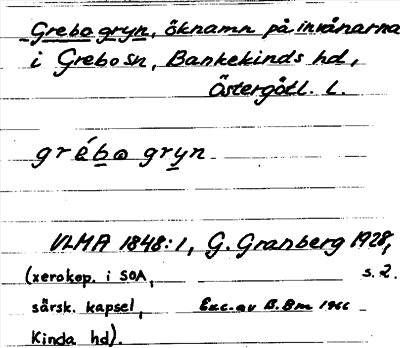 Grebo gryn, öknamn på invånarna
i Grebo sn, Bankekinds hd,
Östergötl. l.
grébo gryn
VLMA 1848:1, G. Granberg 1928,
(xerokop. i SOA, s. 2.
särsk. kapsel, Exc. av B. Bm 1966
Kinda hd).